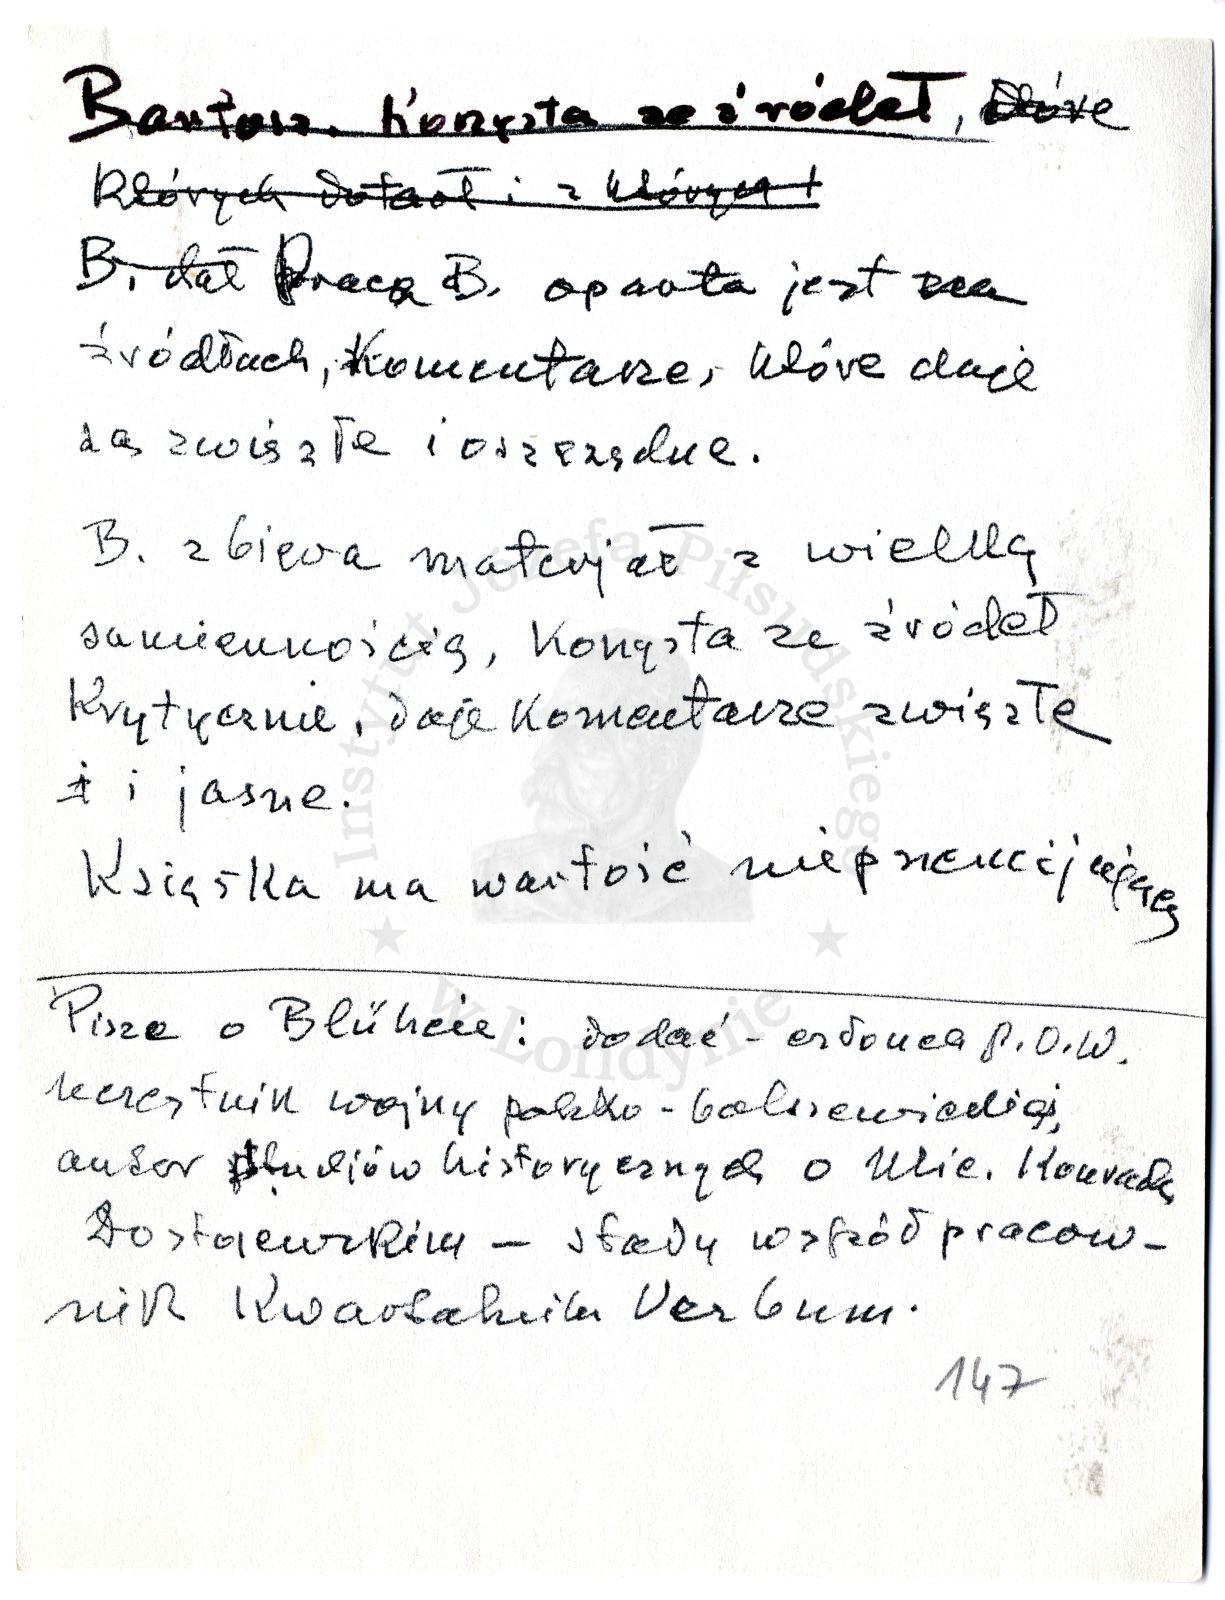 Bartosz. Korzysta ze źródeł, które
których dotarł i z których
B. dał Praca B. oparta jest na
źródłach, Komentarze, które daje
są zwięzłe i oszczędne.
B. zbiera materjał z wielką
sumiennością, Korzysta ze źródeł
Krytycznie, daje Komentarze zwięzłe
i i jasne.
Książka ma wartość nieprzemijającą
Pisze o Blüthcie: dodać - członea P.O.W.
uczestnik wojny polsko - bolszewickiej,
autor studjów historycznych o Mic. Konradzie
Dostojewskim — stały współpracow-
nik Kwartalnika Verbum.
147
Instytut Józefa Piłsudskiego
w Londynie